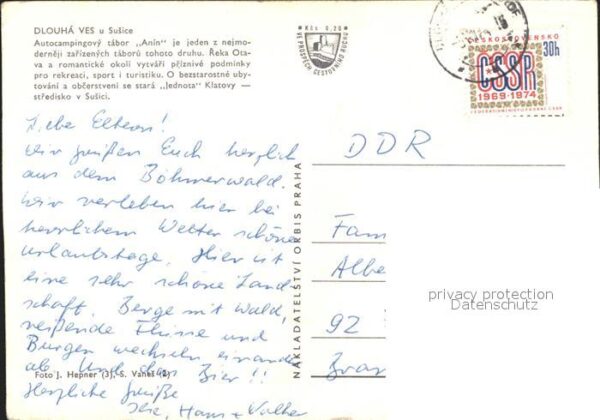 DLOUHÁ VES u Sušice
Autocampingový tábor „Anín" je jeden z nejmo-
derněji zařízených táborů tohoto druhu. Řeka Ota-
va a romantické okolí vytváří příznivé podmínky
pro rekreaci, sport i turistiku. O bezstarostné uby-
tování a občerstvení se stará „Jednota" Klatovy —
středisko v Sušici.
Kčs 0,70
VE PROSPĚCH CESTOVNÍHO RUCHU
ČESKOSLOVENSKO
30h
ČSSR
1969-1974
Liebe Eltern!
Wir grüßen Euch herzlich
aus dem Böhmerwald.
Wir verleben hier bei
herrlichem Wetter schöne
Urlaubstage. Hier ist
eine sehr schöne Land
schaft. Berge mit Wald,
reißende Flüsse und
Burgen wechseln einander
ab. Und das Bier!!
Herzliche Grüße
Hans + Walter
Foto J. Hepner (3), S. Vaněš (2)
NAKLADATELSTVÍ ORBIS PRAHA
DDR
Fam
Albe
92
privacy protection
Datenschutz